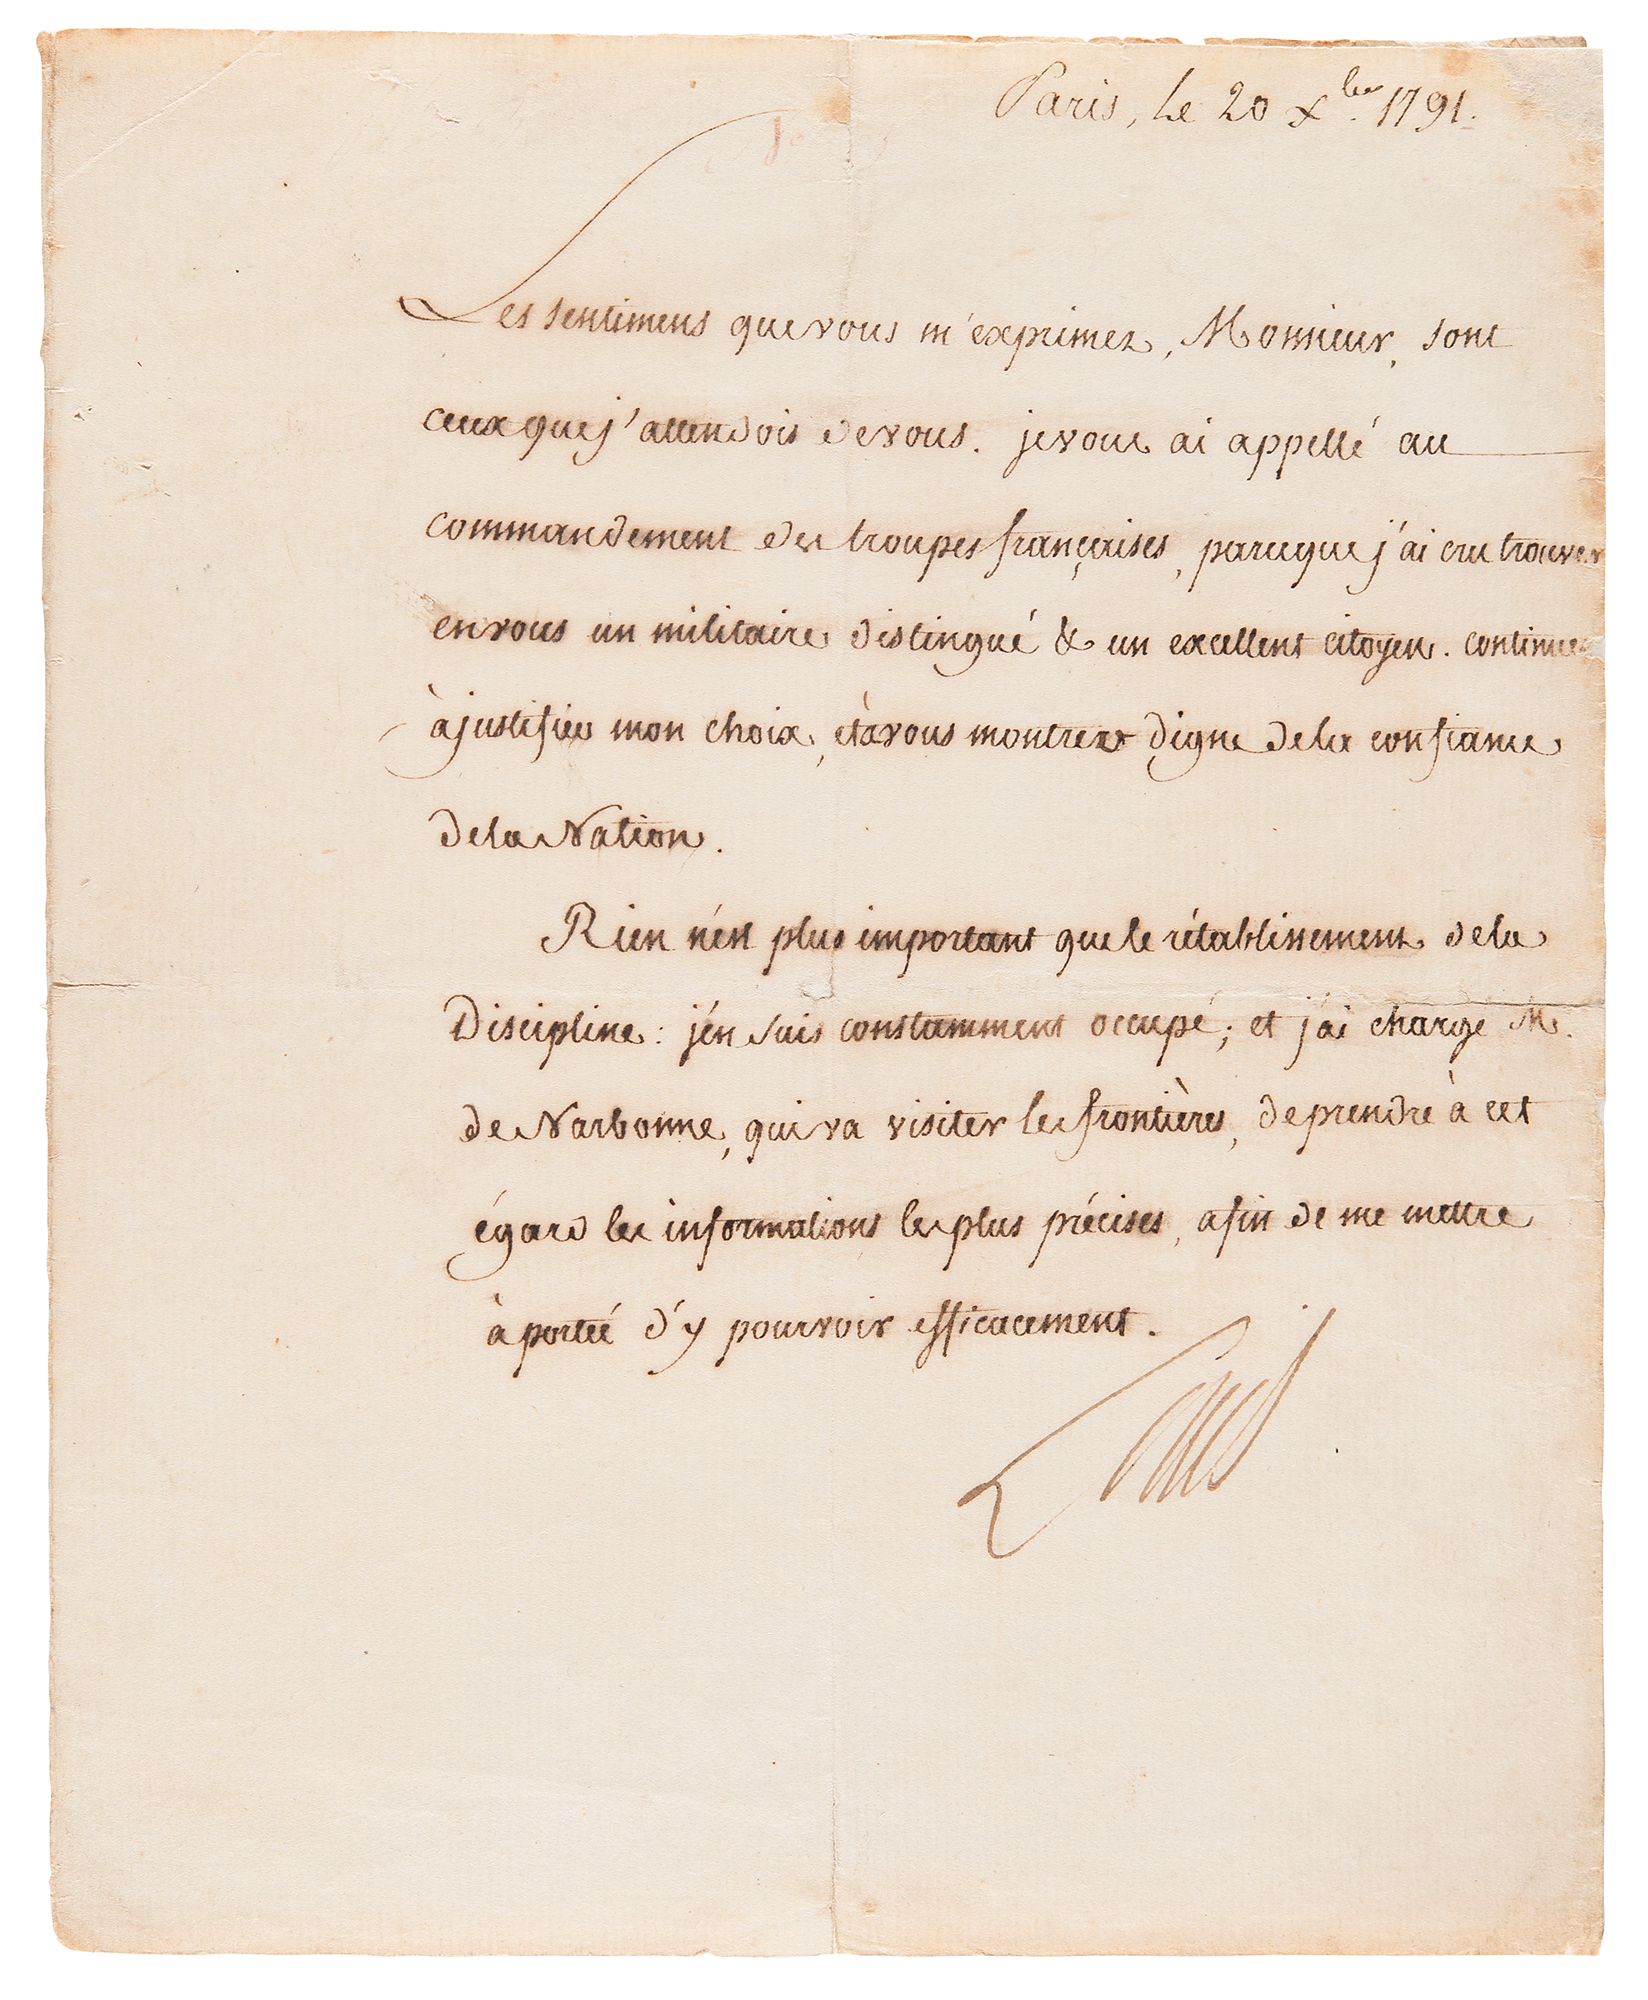 Paris, le 20 Xbre. 1791.
Les sentimens que vous m'exprimez, Monsieur, sont
ceux que j'attendois de vous. je vous ai appellé au
commandement des troupes françaises, parceque j'ai cru trouver
en vous un militaire distingué & un excellent citoyen. continuez
à justifier mon choix, et à vous montrer digne de la confiance
de la Nation.
Rien n'est plus important que le rétablissement de la
Discipline: j'en suis constamment occupé; et j'ai chargé M.
de Narbonne, qui va visiter les frontières, de prendre à cet
égard les informations les plus précises, afin de me mettre
à portée d'y pourvoir efficacement.
Louis